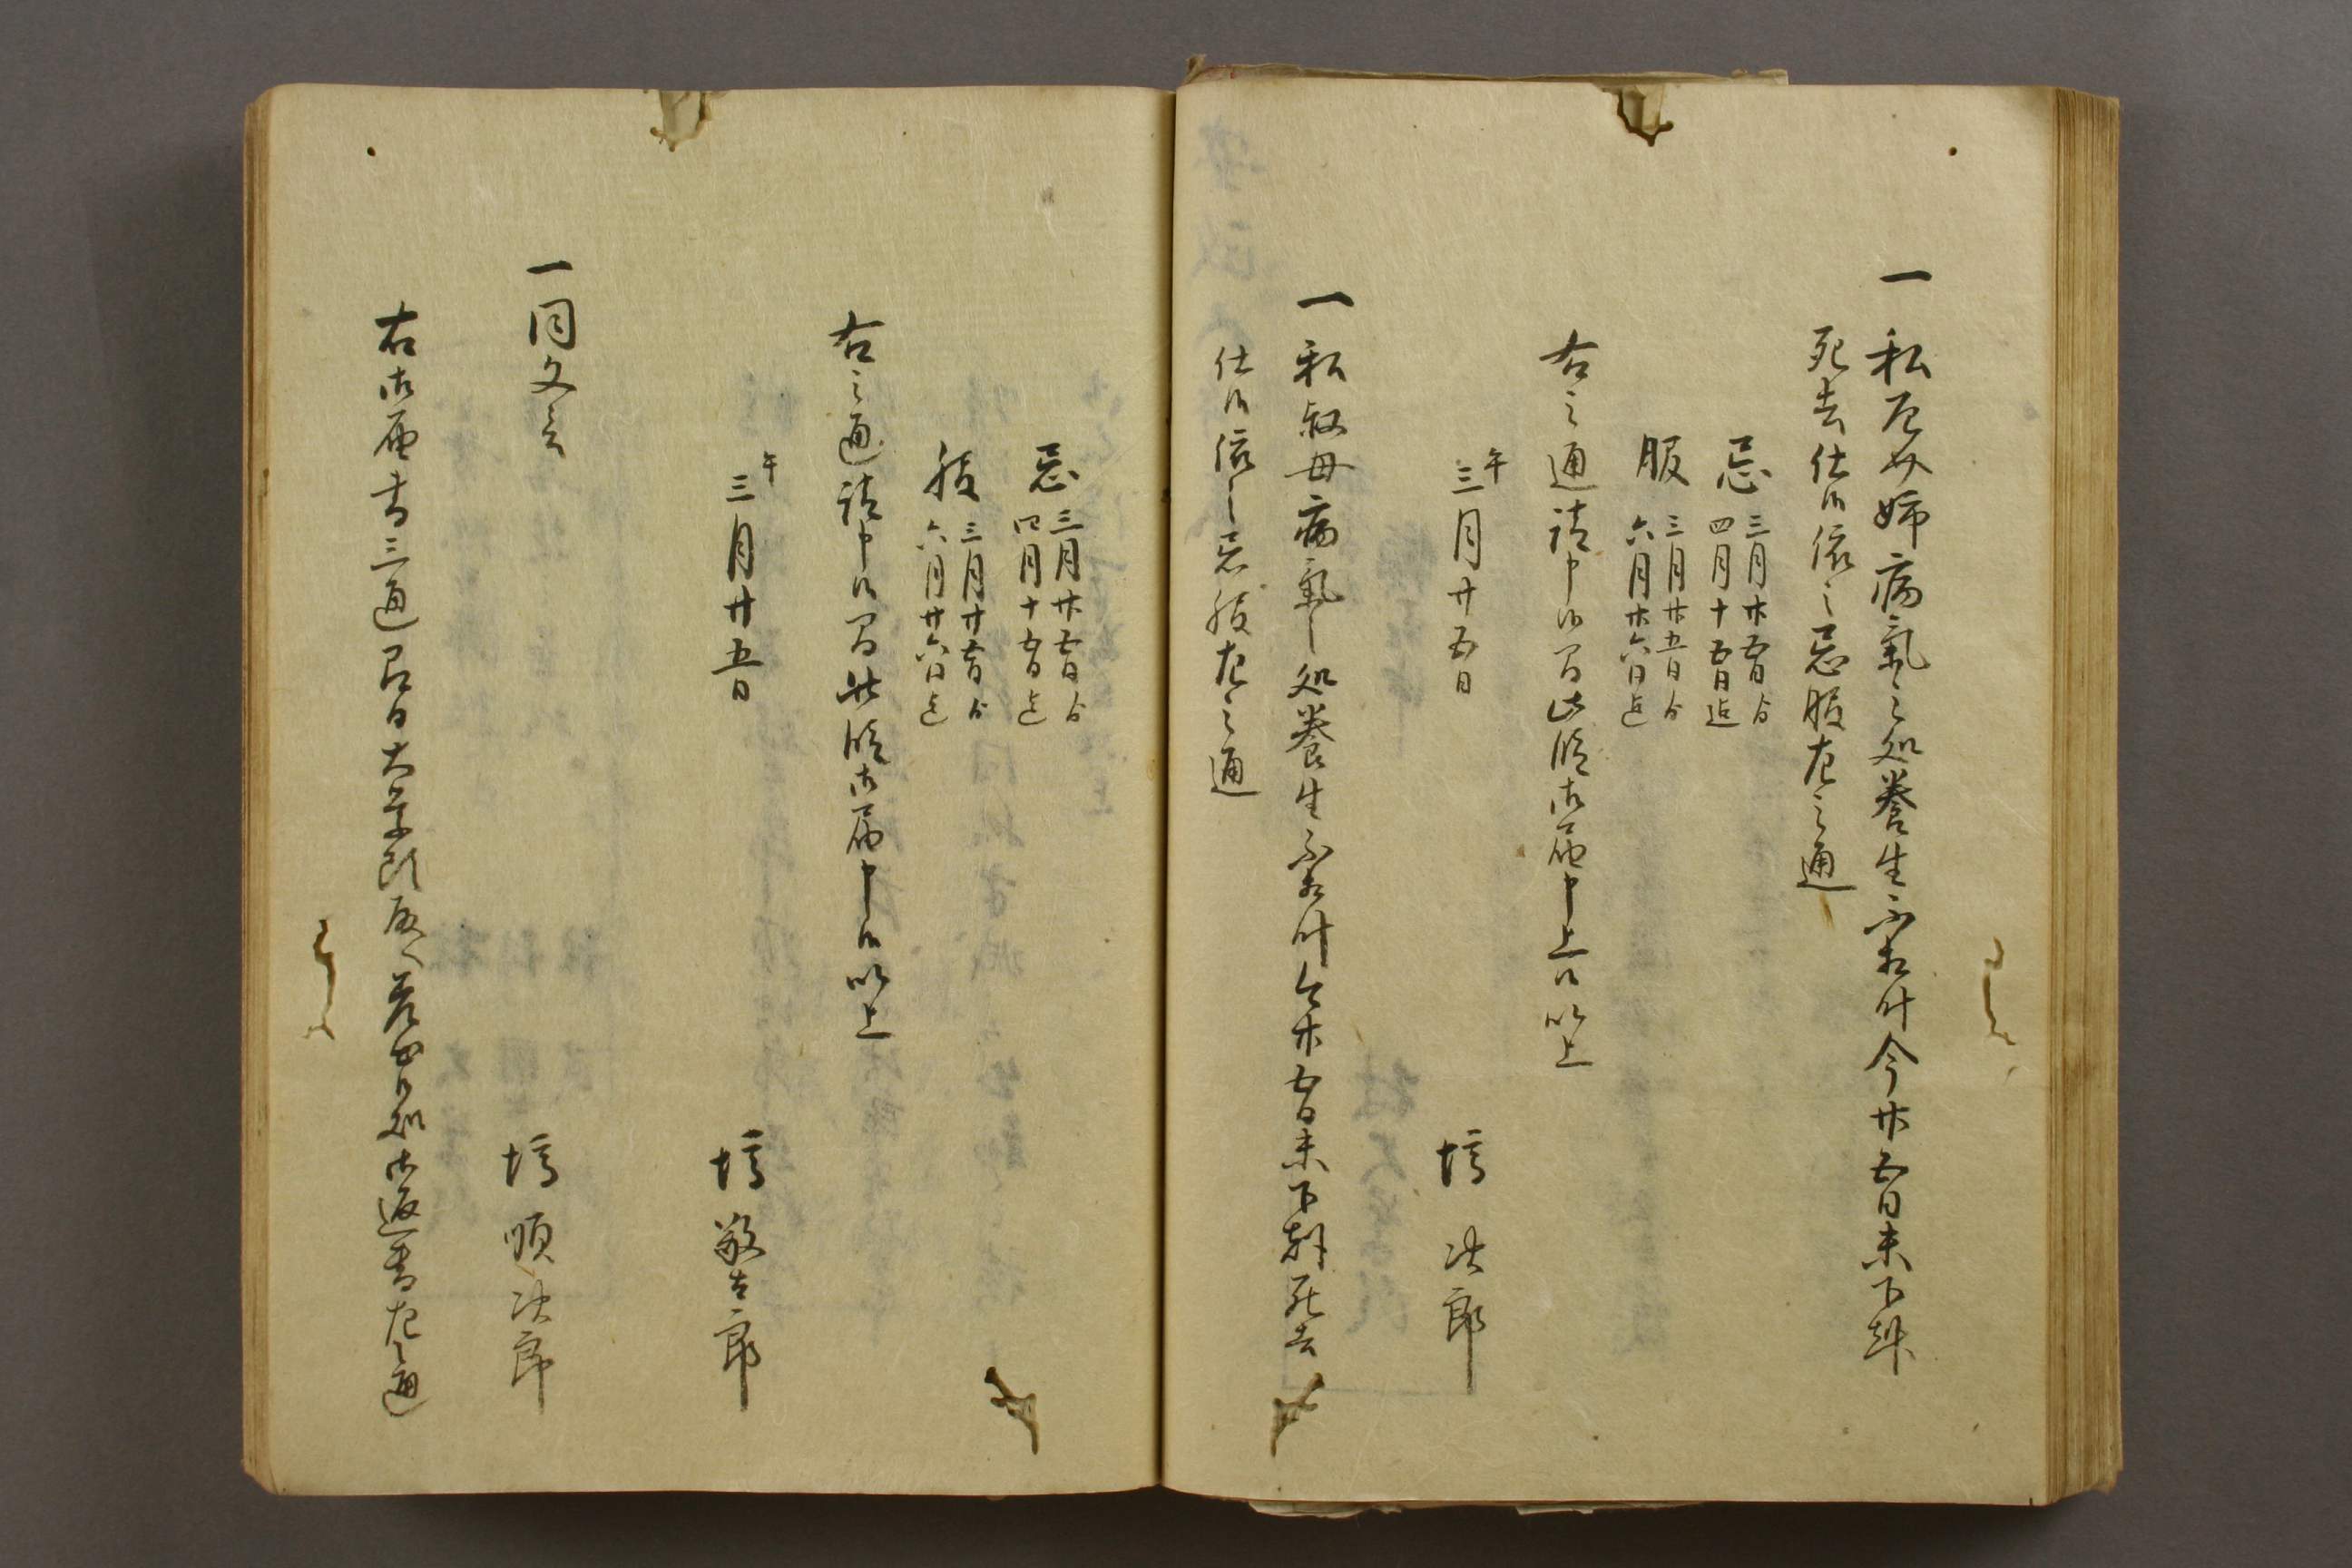 一 私老女姉病氣之処養生不相叶今廿五日未下刻
死去仕候依之忌服左之通
忌 三月廿五日ゟ
四月十五日迄
服 三月廿五日ゟ
六月廿六日迄
右之通請申候間此段御届申上候以上
午
三月廿五日
塙 次郎
一 私叔母病氣之処養生不相叶今廿五日未下刻死去
仕候依之忌服左之通
忌 三月廿五日ゟ
四月十五日迄
服 三月廿五日ゟ
六月廿六日迄
右之通請申候間此段御届申候以上
午
三月廿五日
塙 敬太郎
一 同文言
塙 順次郎
右御届書三通即日大学頭殿へ差出候処御返書左之通